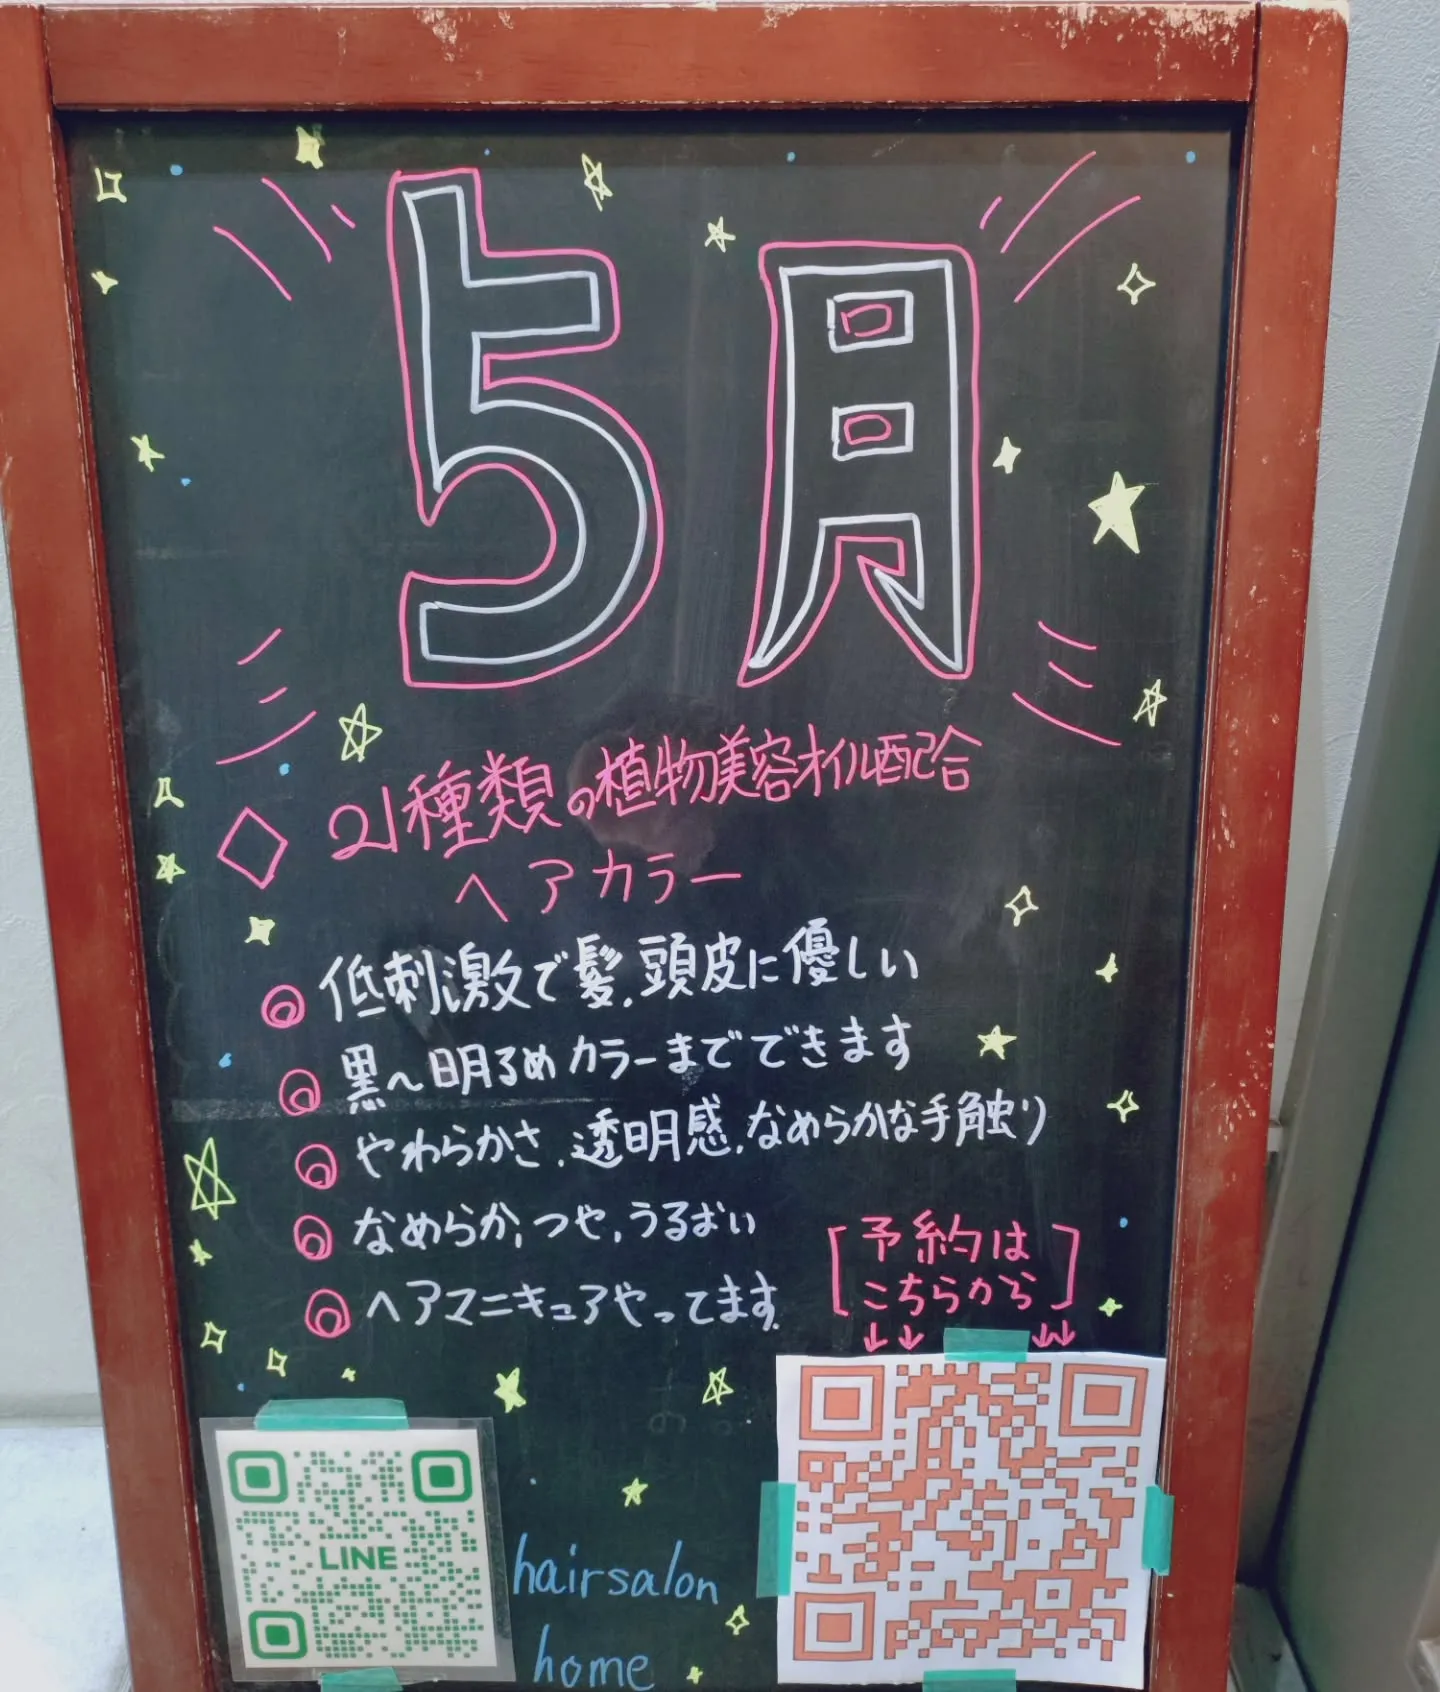 5月
◇ 21種類の植物美容オイル配合
ヘアカラー
◎ 低刺激で髪、頭皮に優しい
◎ 黒〜明るめカラーまでできます
◎ やわらかさ、透明感、なめらかな手触り
◎ なめらか、つや、うるおい
◎ ヘアマニキュアやってます。
[予約は
こちらから]
↓↓ ↓↓
LINE
hairsalon
home